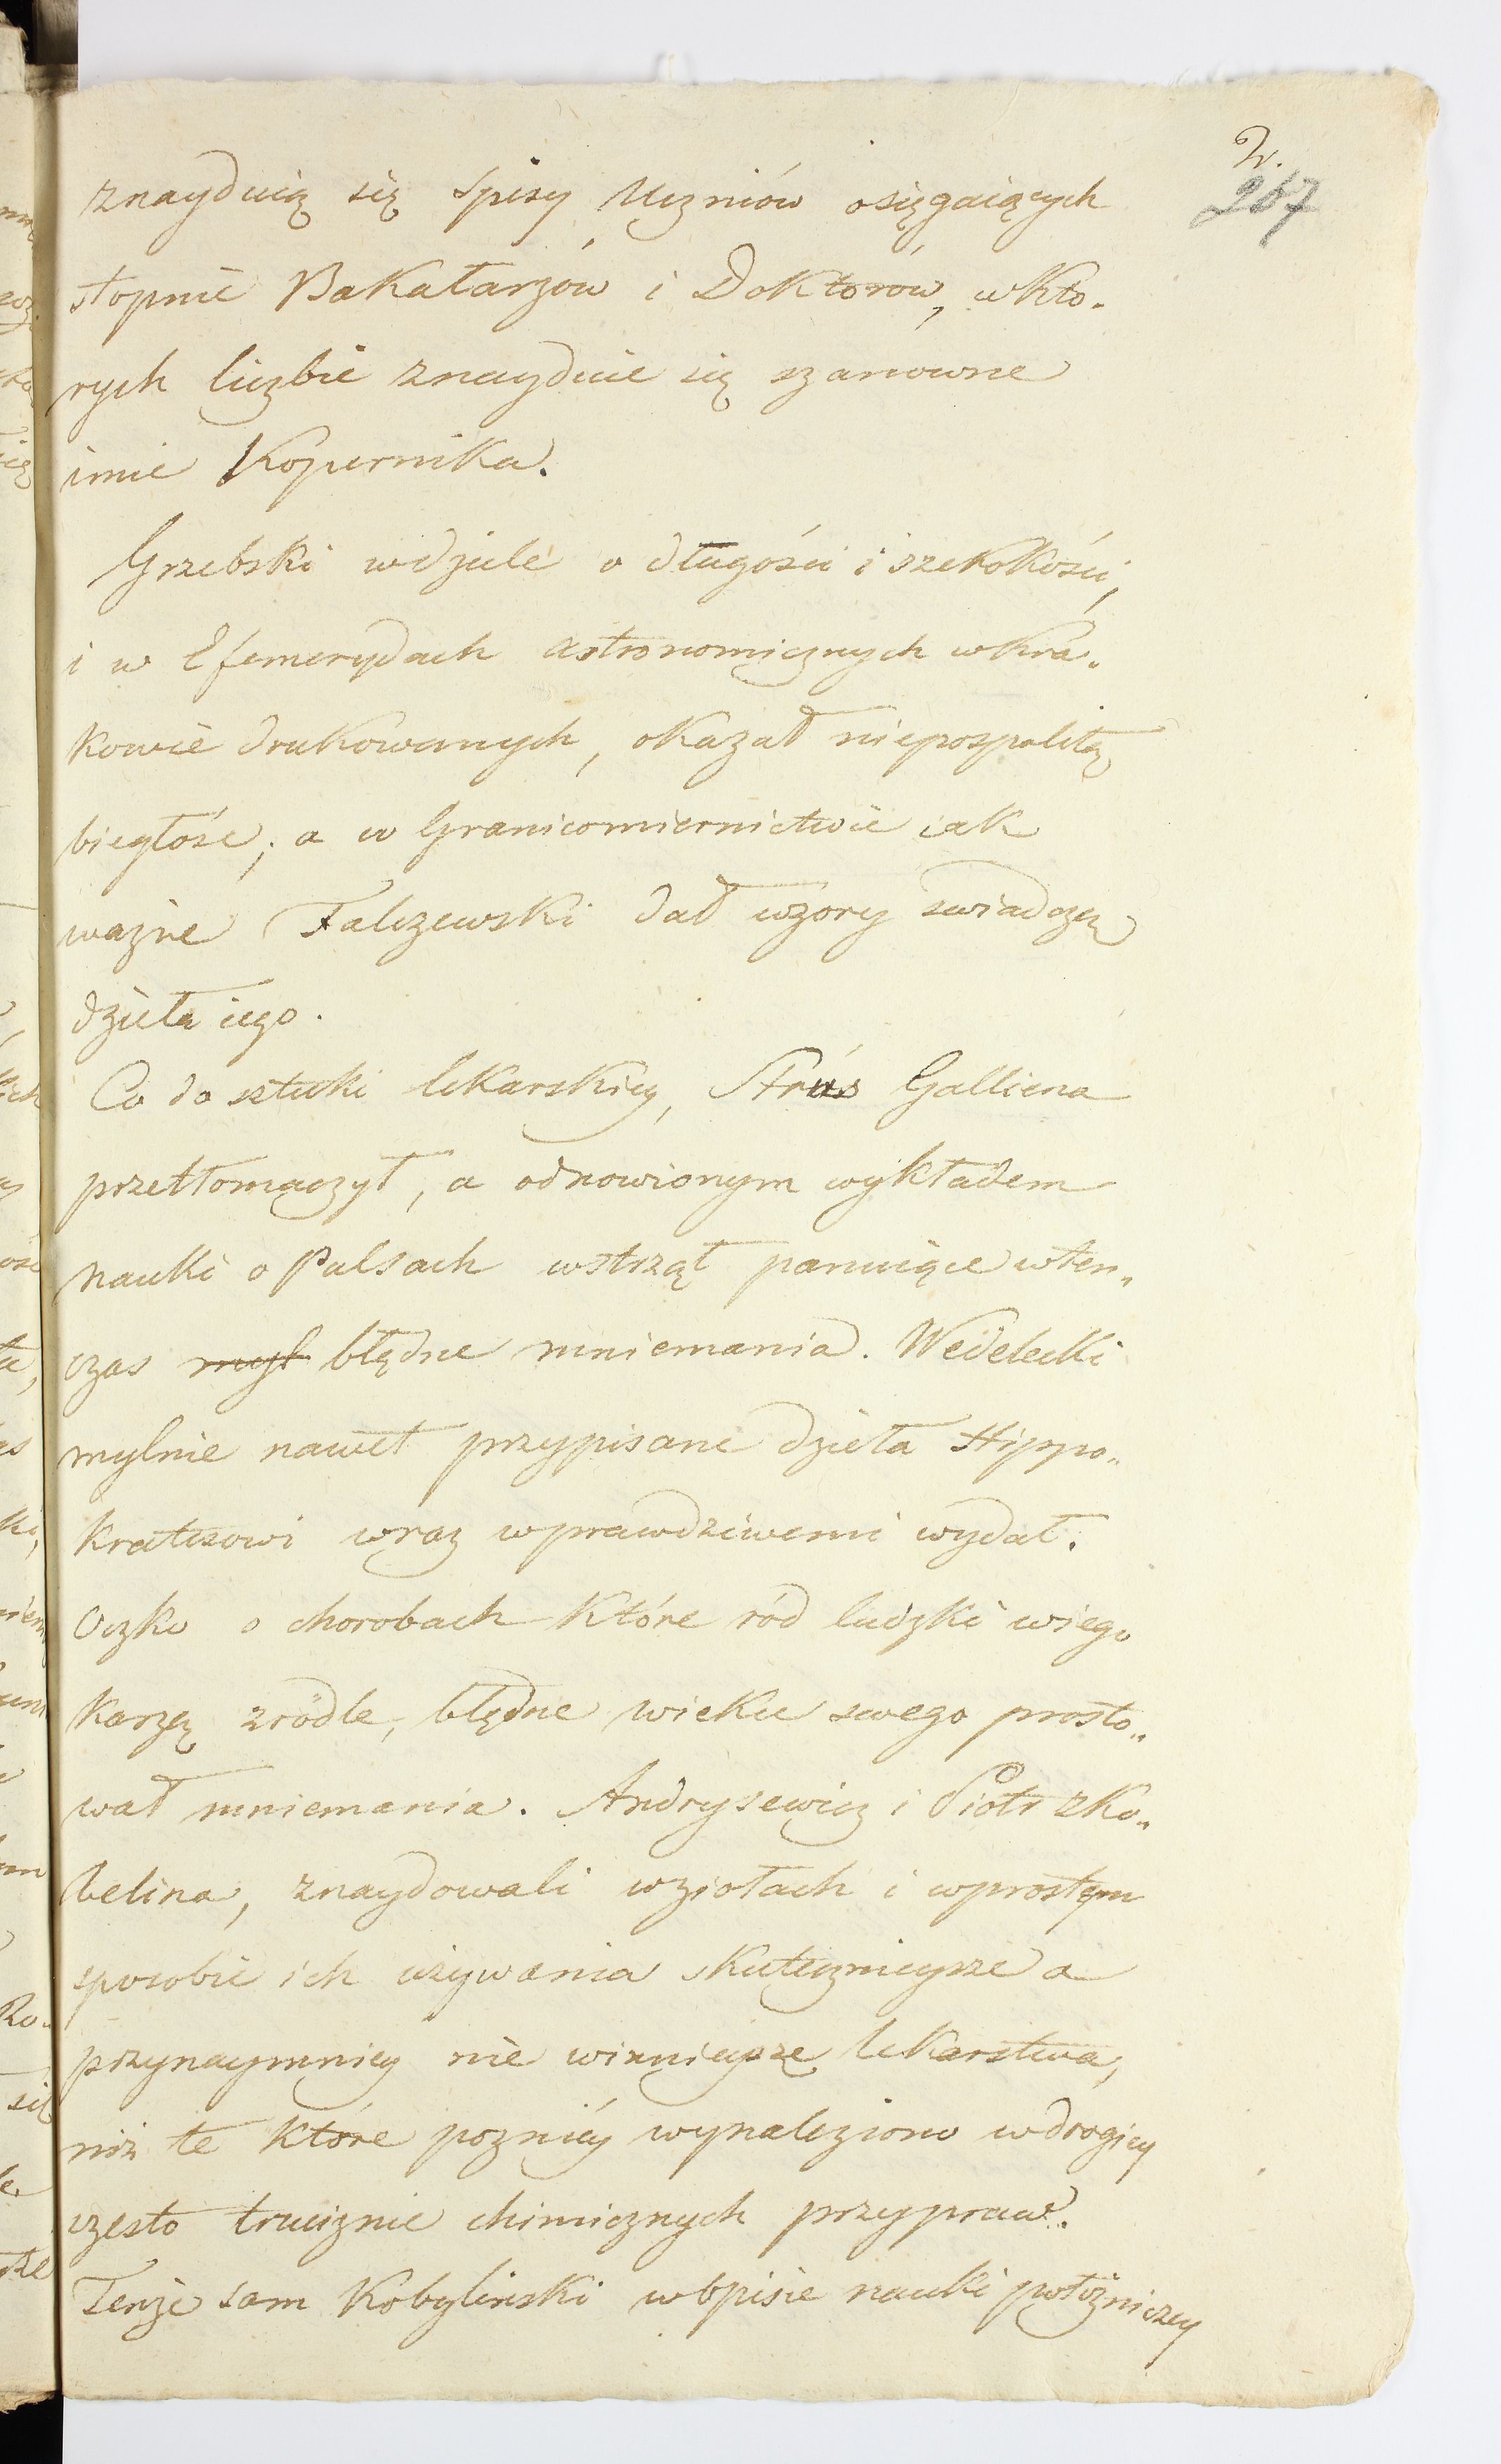 2.
267
znayduią się Spisy Uczniów osięgaiących
stopnie Bakałarzów i Doktorów, w któ-
rych liczbie znayduie się szanowne
imie Kopernika.
Grzebski w dziele o długości i szerokości,
i w Efemerydach astronomicznych w Kra-
kowie drukowanych, okazał niepospolitą
biegłość; a w Granicomiernictwie iak
ważne Falczewski dał wzory swiadczą
dzieła iego.
Co do sztuki lekarskiey, Struś Galliena
przetłomaczył, a odnowionym wykładem
nauki o Pulsach wstrzął panuiące wten-
czas mył błędne mniemania. Wedelecki
mylnie nawet przypisane dzieła Hippo-
kratesowi wraz w prawdziwemi wydał.
Oczko o chorobach które ród ludzki w iego
karzą zródle, błędne wieku swego prosto-
wał mniemania. Andrysewicz i Piotr z Ko-
belina, znaydowali w ziołach i w prostym
sposobie ich używania skutecznieysze a
przynaymniey nie winnieysze lekarstwa,
niż te które pozniéy wynaleziono w drogiey
często truciznie chimicznych przypraw.
Tenże sam Kobylinski w opisie nauki połóżniczey